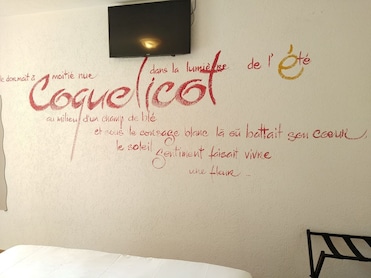 le dormait à moitié nue dans la lumière de l'été
Coquelicot
au milieu d'un champ de blé
et sous le corsage blanc là où battait son coeur
le soleil gentiment faisait vivre
une fleur...